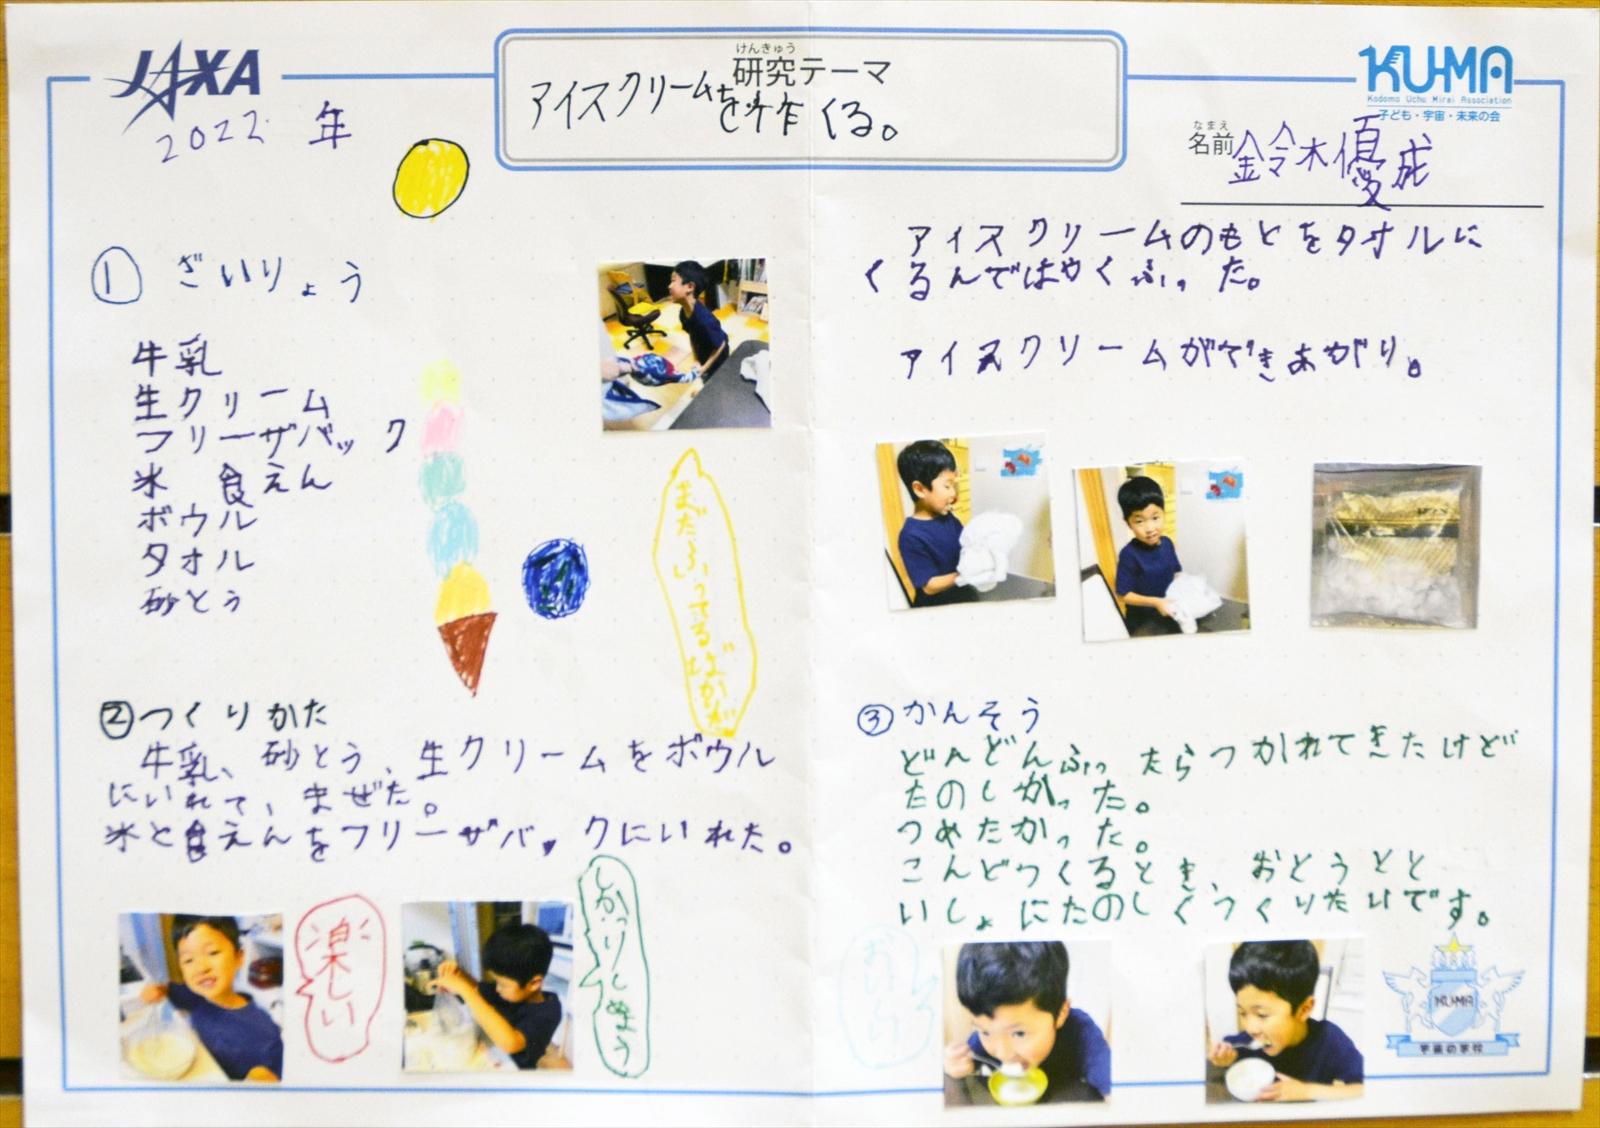 JAXA
2022年
けんきゅう
研究テーマ
アイスクリームを作くる。
KU-MA
Kodomo Uchu Mirai Association
子ども・宇宙・未来の会
なまえ
名前 鈴木優成
① ざいりょう
牛乳
生クリーム
フリーザバック
氷 食えん
ボウル
タオル
砂とう
まだふってるばかが
②つくりかた
牛乳、砂とう、生クリームをボウル
にいれて、まぜた。
氷と食えんをフリーザバックにいれた。
楽しい
しかっりしめよう
アイスクリームのもとをタオルに
くるんではやくふった。
アイスクリームができあがり。
③かんそう
どんどんふったらつかれてきたけど
たのしかった。
つめたかった。
こんどつくるとき、おとうとと
いしょにたのしくつくりたいです。
おいしい
KU-MA
宇宙の学校